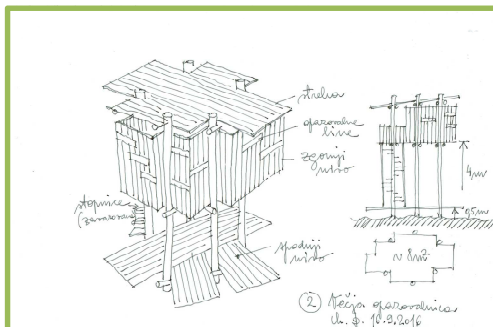 streha
opazovalne
line
zgornji
nivo
stopnice
spodnji
nivo
4m
0,5m
~ 8m²
2 Večja opazovalnica
16.9.2016